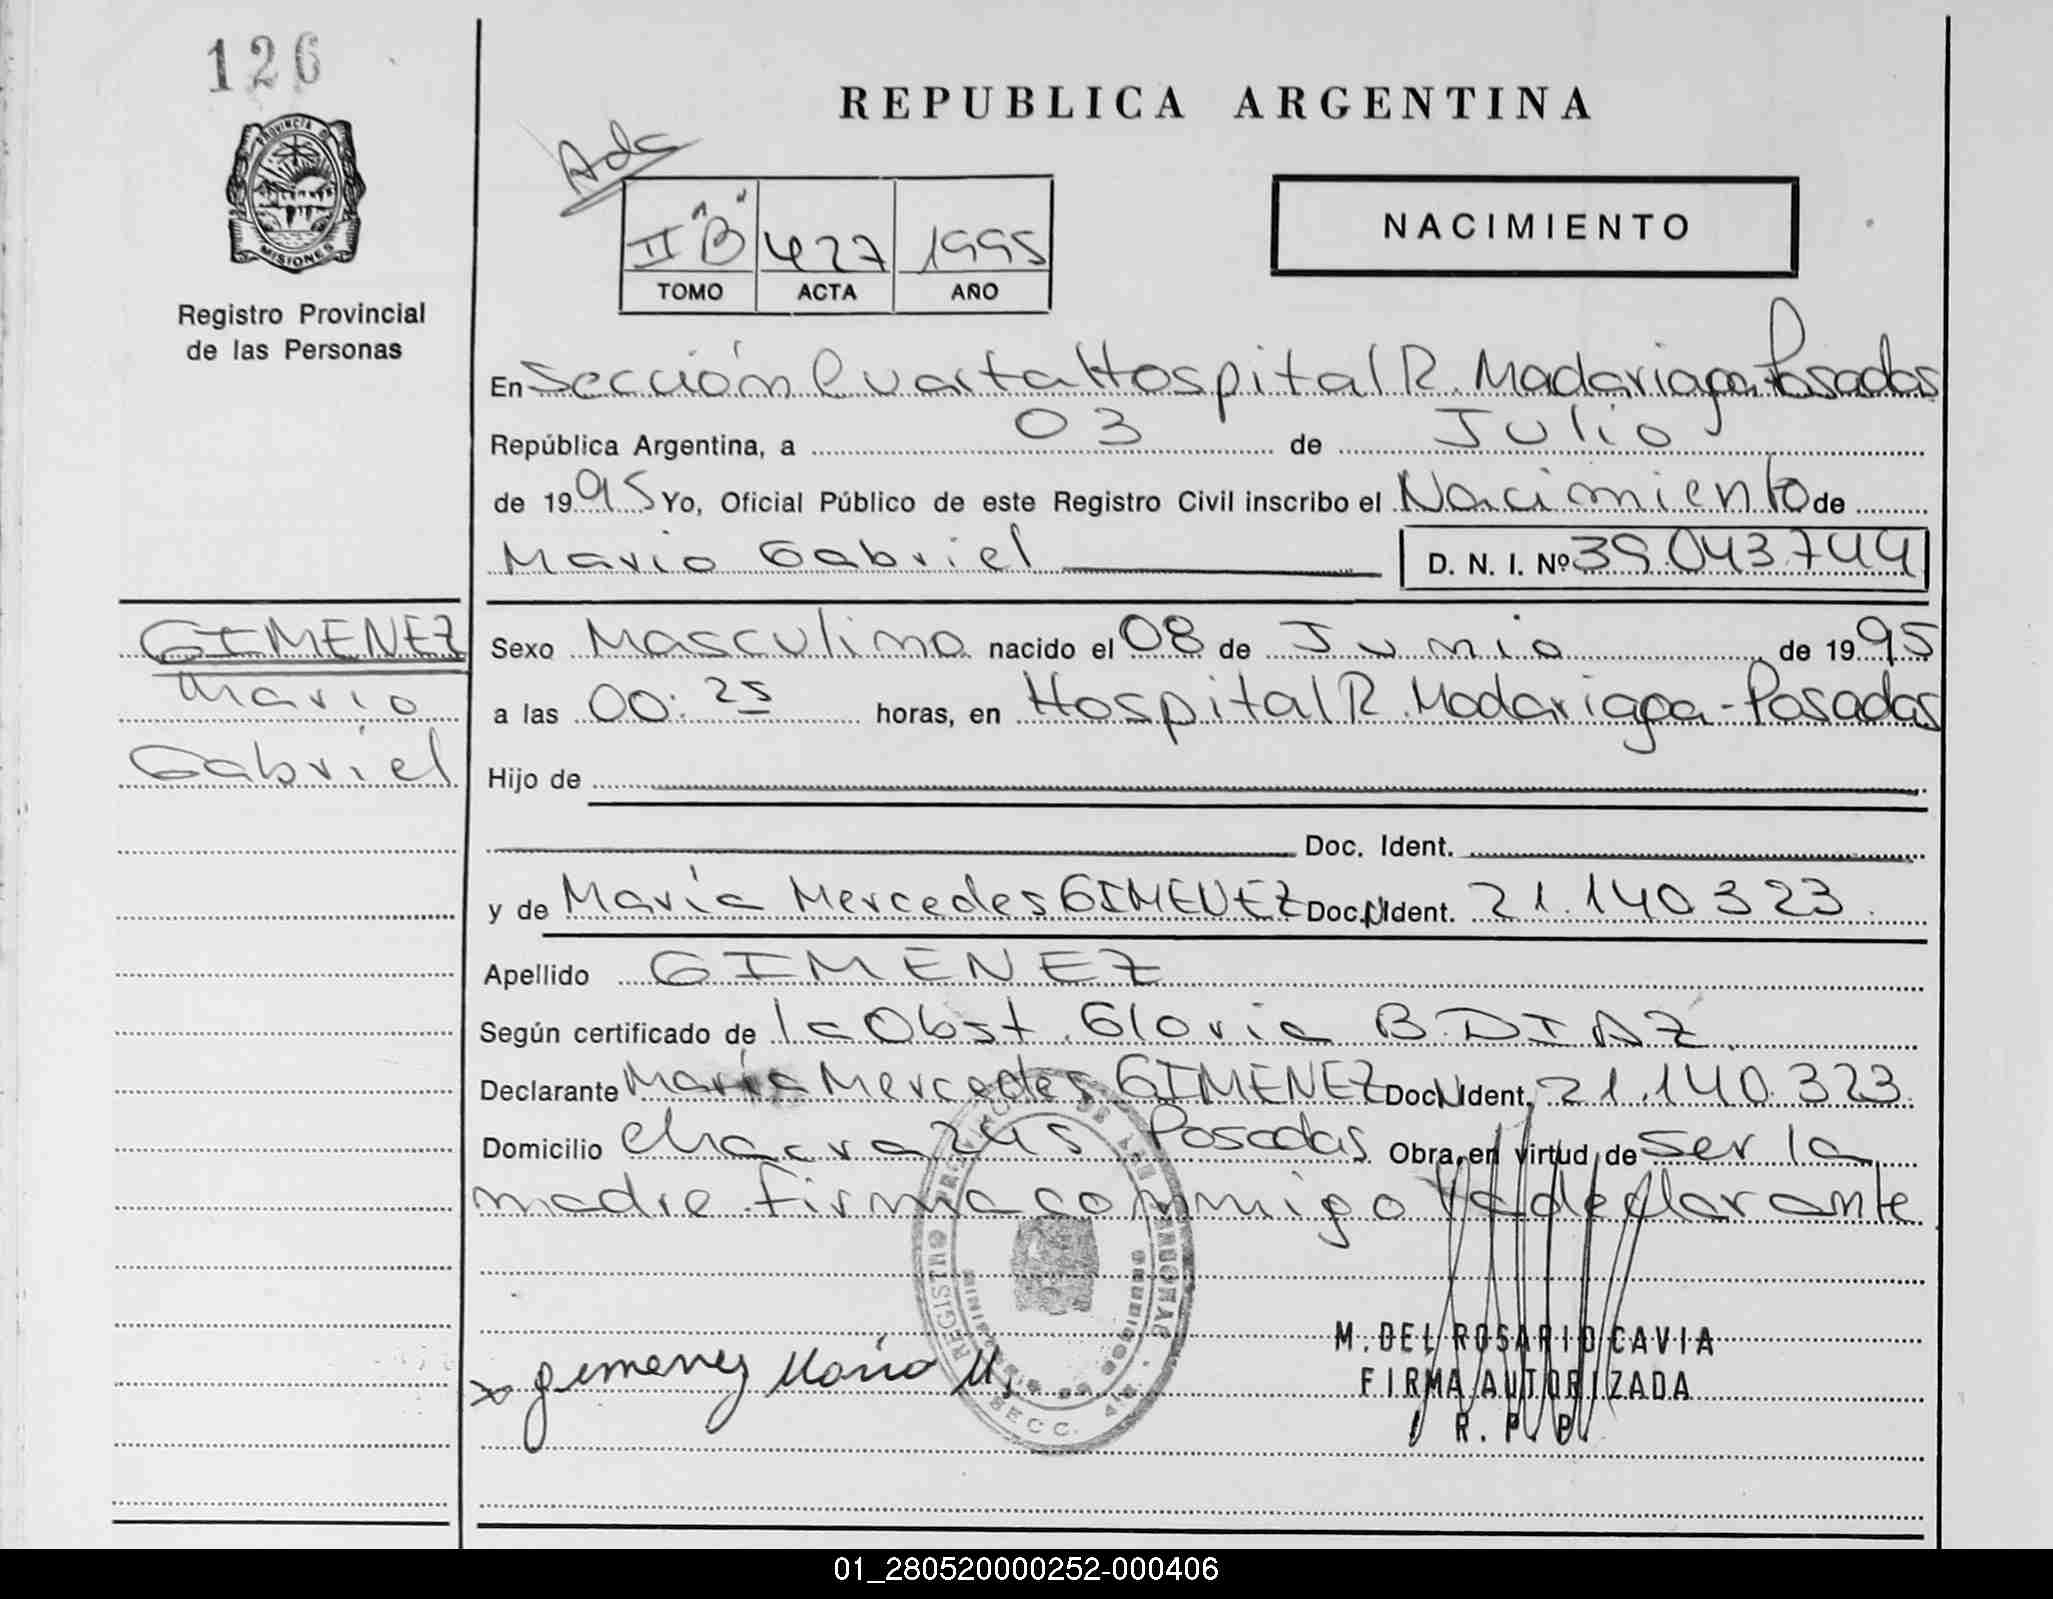 126
PROVINCIA DE
MISIONES
Registro Provincial
de las Personas
REPUBLICA ARGENTINA
Ads
II "B" 427 1995
TOMO ACTA AÑO
NACIMIENTO
En Sección Cuarta Hospital R. Madariaga Posadas
República Argentina, a 03 de Julio
de 1995 Yo, Oficial Público de este Registro Civil inscribo el Nacimiento de
Mario Gabriel D. N. I. Nº 39.043.744
GIMENEZ
Mario
Gabriel
Sexo Masculino nacido el 08 de Junio de 1995
a las 00:25 horas, en Hospital R. Madariaga - Posadas
Hijo de
Doc. Ident.
y de María Mercedes GIMENEZ Doc. N Ident. 21.140.323
Apellido GIMENEZ
Según certificado de la Obst. Gloria B. DIAZ.
Declarante María Mercedes GIMENEZ Doc. N Ident. 21.140.323
Domicilio Chacra 245 Posadas Obra, en virtud de ser la
madre firma conmigo la declarante
REGISTRO
SECC. 4ta.
x gimenez Maria M.
M. DEL ROSARIO CAVIA
FIRMA AUTORIZADA
R. P. P.
01_280520000252-000406